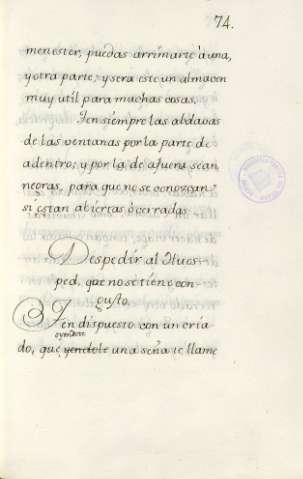 74.
menester, puedas arrimarte à una,
y otra parte; y sera este un almacen
muy util para muchas cosas.
Ten siempre las aldavas
de las ventanas por la parte de
adentro; y por la de afuera sean
negras, para que no se conozcan
si estan abiertas ò cerradas.
Despedir al Hues-
ped, que no se tiene con
gusto.
Ten dispuesto con un cria-
oyendote
do, que yendole una seña te llame